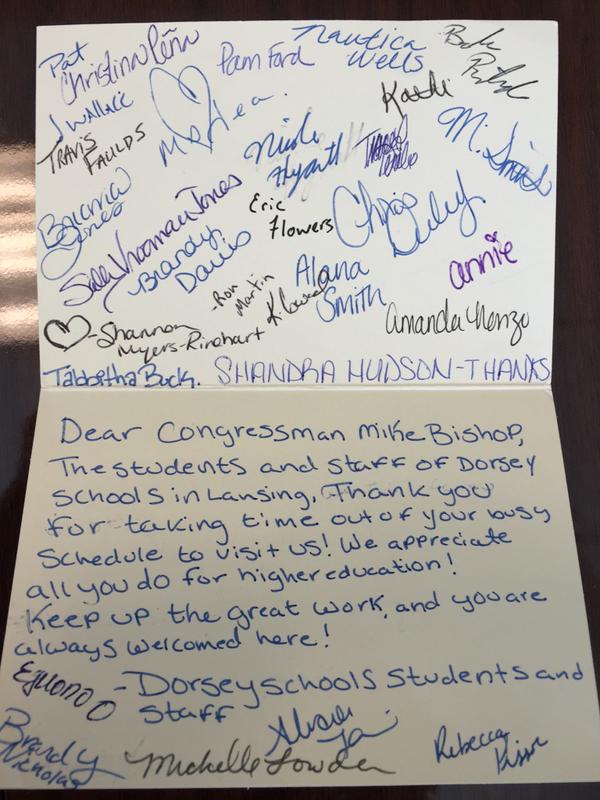 Pat
Christina Peña
Pam Ford
Nautica
Wells
J Wallace
Travis
Faulds
Kathi
M. Sims
Nicole
Hyantt
Brianna
Jones
Vrooman Jones
Brandy
Davis
Eric
Flowers
Chris
annie
Alana
Smith
-Ron
Martin
Amanda
♡-Shannon
Myers-Rinehart
Tabbitha Buck.
SHANDRA HUDSON-THANKS
Dear Congressman Mike Bishop,
The students and staff of Dorsey
Schools in Lansing, Thank you
for taking time out of your busy
Schedule to visit us! We appreciate
all you do for higher education!
Keep up the great work, and you are
always welcomed here!
-Dorsey schools students and
staff
Brandy
Nicholas
Michelle Lowden
Rebecca